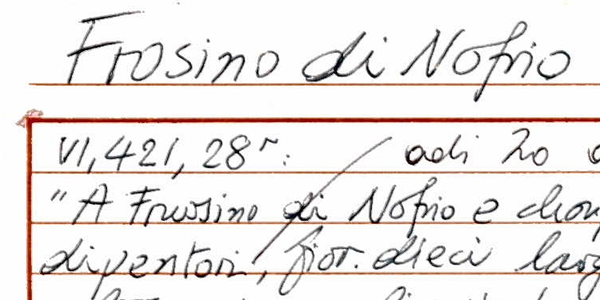 Frosino di Nofrio
VI, 421, 28r: adi 20
"A Frusino di Nofrio e
dipentori, fior. dieci